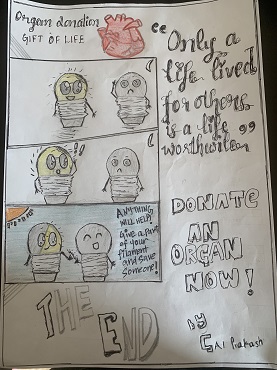 Organ donation
GIFT OF LIFE
“Only a
life lived
for others
is a life
worthwhile”
!!
ANYTHING
WILL HELP!
Give a part
of your
filament
and save
someone!
DONATE
AN
ORGAN
NOW!
THE
END
By
Sai Prakash